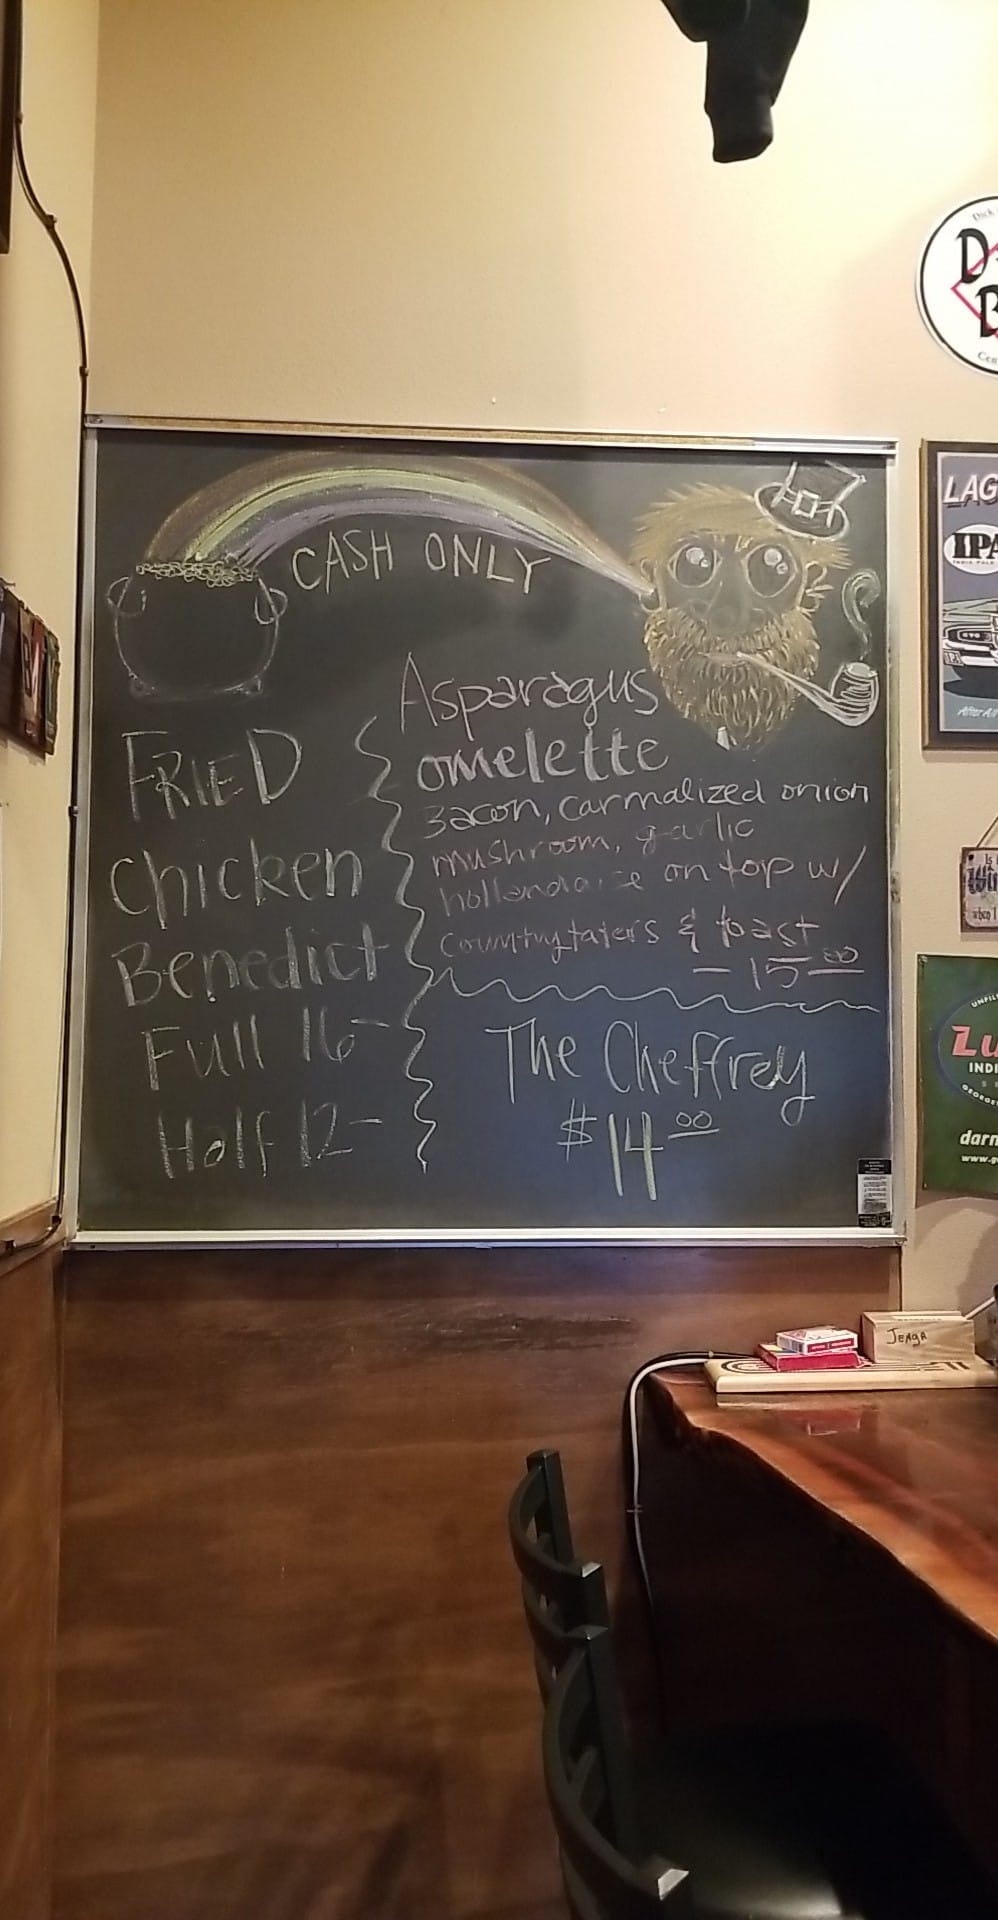 CASH ONLY
FRIED
Chicken
Benedict
Full 16-
Half 12-
Asparagus
omelette
Bacon, carmalized onion
mushroom, garlic
hollandaise on top w/
country taters & toast
- 15 00
The Cheffrey
$14 00
Dick
D
B
Cen
LAG
IPA
INDIA PALE
After All
Is
Win
when I
UNFIL
Lu
INDI
GEORGE
darn
www.g
JENGA